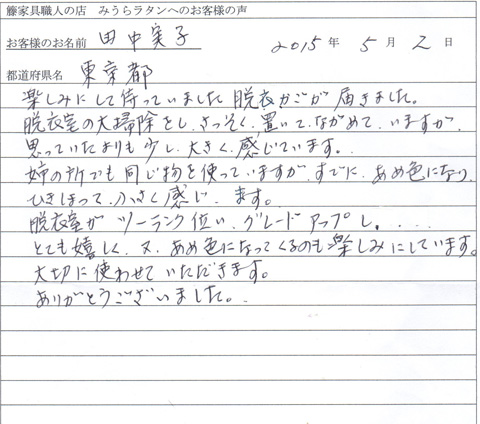 籐家具職人の店　みうらラタンへのお客様の声
お客様のお名前 田中実子 2015年 5月 2日
都道府県名 東京都
楽しみにして待っていました 脱衣かごが 届きました。
脱衣室の大掃除をし、さっそく、置いて、ながめて、いますが、
思っていたよりも少し、大きく、感じています。
姉の所でも 同じ物を使っていますが、すでに、あめ色になり、
ひきしまって、小さく感じ、ます。
脱衣室が ツーランク位い、グレードアップし、...
とても嬉しく、又、あめ色になってくるのも楽しみにしています。
大切に使わせていただきます。
ありがとうございました。